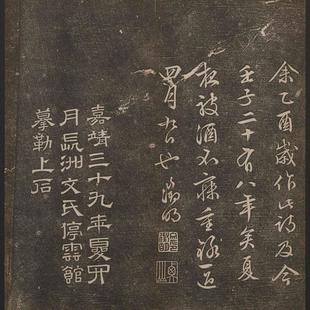 余乙酉歲作此詩及今
壬子二十有八年矣夏
夜被酒不寐重錄一過
四月也徵明
嘉靖三十九年夏四
月長洲文氏停雲館
摹勒上石